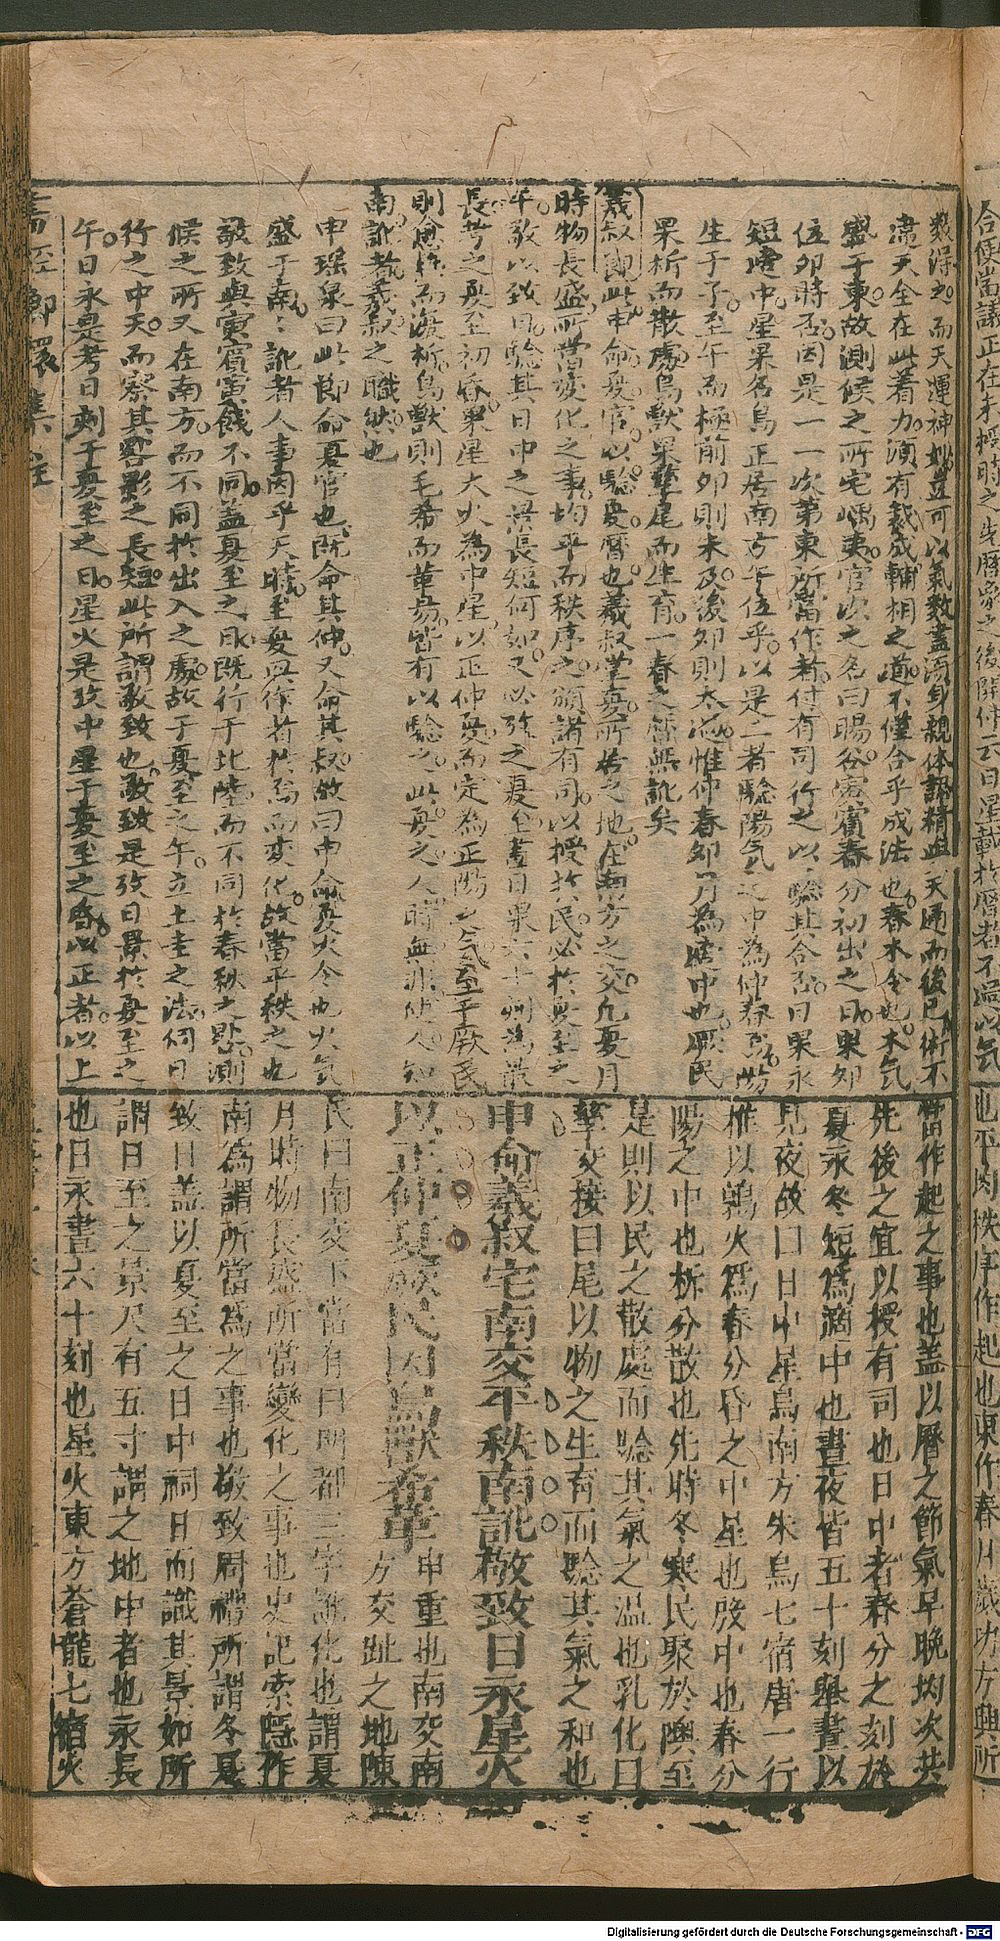 數得之而天運神妙豈可以氣數盡須身親体認精血與天通而後已術不
濡天全在此着力須有裁成輔相之道不僅合乎成法也春木令也木气
盛于東故測候之所宅嵎夷官次之名曰暘谷寅賓春分初出之日果卯
位卯時否因是一一次第東所當作者付有司行之以驗其合否日果永
短適中星果名鳥正居南方午位乎以是二者驗陽气之中為仲春至
生于子至午而極前卯則未及後卯則太過惟仲春卯月為陽中也厥民
果析而散處鳥獸果孳尾而生育一春之曆無訛矣
羲叔節此申命夏官以驗夏曆也羲叔掌夏所居之地在南方之交凡夏月
時物長盛所當变化之事均平而秩序之頒諸有司以授於民必於夏至之
午敬以致日驗其日中之景長短何如又必考之夏至晝日果六十刻為最
長考之夏至初昏果星大火為中星以正仲夏而定為正陽之气至于厥民
則愈析而為析鳥獸則毛希而革易皆有以驗之此夏之人時無非使人知
南訛者羲叔之職然也
申瑤泉曰此節命夏官也既命其仲又命其叔故曰申命夏火令也火气
盛于南南訛者人事因乎天時至夏與作者於焉而变化故當平秩之也
敬致與寅賓寅餞不同蓋夏至之日既行于北陸而不同於春秋之躔測
候之所又在南方而不同於出入之處故于夏至之午立土圭之法伺日
行之中天而察其晷影之長短此所謂敬致也敬致是攷日景於夏至之
午日永是考日刻于夏至之日星火是攷中星于夏至之昏以正者以上
當作起之事也蓋以曆之節氣早晚均次其
先後之宜以授有司也日中者春分之刻於
夏永冬短爲適中也晝夜皆五十刻舉晝以
見夜故曰日中星鳥南方朱鳥七宿唐一行
推以鶉火爲春分昏之中星也殷中也春分
陽之中也析分散也先時冬寒民聚於隩至
是則以民之散處而驗其氣之温也乳化曰
孳交接曰尾以物之生育而驗其氣之和也
申命羲叔宅南交平秩南訛敬致日永星火
以正仲夏厥民因鳥獸希革
申重也南交南
方交趾之地陳
氏曰南交下當有曰明都三字訛化也謂夏
月時物長盛所當變化之事也史記索隱作
南爲謂所當爲之事也敬致周禮所謂冬夏
致日蓋以夏至之日中祠日而識其景如所
謂日至之景尺有五寸謂之地中者也永長
也日永晝六十刻也星火東方蒼龍七宿火
Digitalisierung gefördert durch die Deutsche Forschungsgemeinschaft - DFG